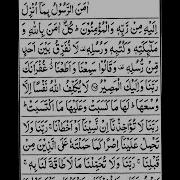 اٰمَنَ الرَّسُوْلُ بِمَآ اُنْزِلَ
اِلَيْهِ مِنْ رَّبِّهٖ وَالْمُؤْمِنُوْنَ ؕ كُلٌّ اٰمَنَ بِاللّٰهِ وَ
مَلٰٓئِكَتِهٖ وَكُتُبِهٖ وَرُسُلِهٖ ۫ لَا نُفَرِّقُ بَيْنَ اَحَدٍ
مِّنْ رُّسُلِهٖ ۫ وَقَالُوْا سَمِعْنَا وَاَطَعْنَا ۫ غُفْرَانَكَ
رَبَّنَا وَاِلَيْكَ الْمَصِيْرُ ۝ لَا يُكَلِّفُ اللّٰهُ نَفْسًا اِلَّا
وُسْعَهَا ؕ لَهَا مَا كَسَبَتْ وَعَلَيْهَا مَا اكْتَسَبَتْ ؕ
رَبَّنَا لَا تُؤَاخِذْنَآ اِنْ نَّسِيْنَآ اَوْ اَخْطَاْنَا ۚ رَبَّنَا وَلَا
تَحْمِلْ عَلَيْنَآ اِصْرًا كَمَا حَمَلْتَهٗ عَلَى الَّذِيْنَ مِنْ
قَبْلِنَا ۚ رَبَّنَا وَلَا تُحَمِّلْنَا مَا لَا طَاقَةَ لَنَا بِهٖ ۚ